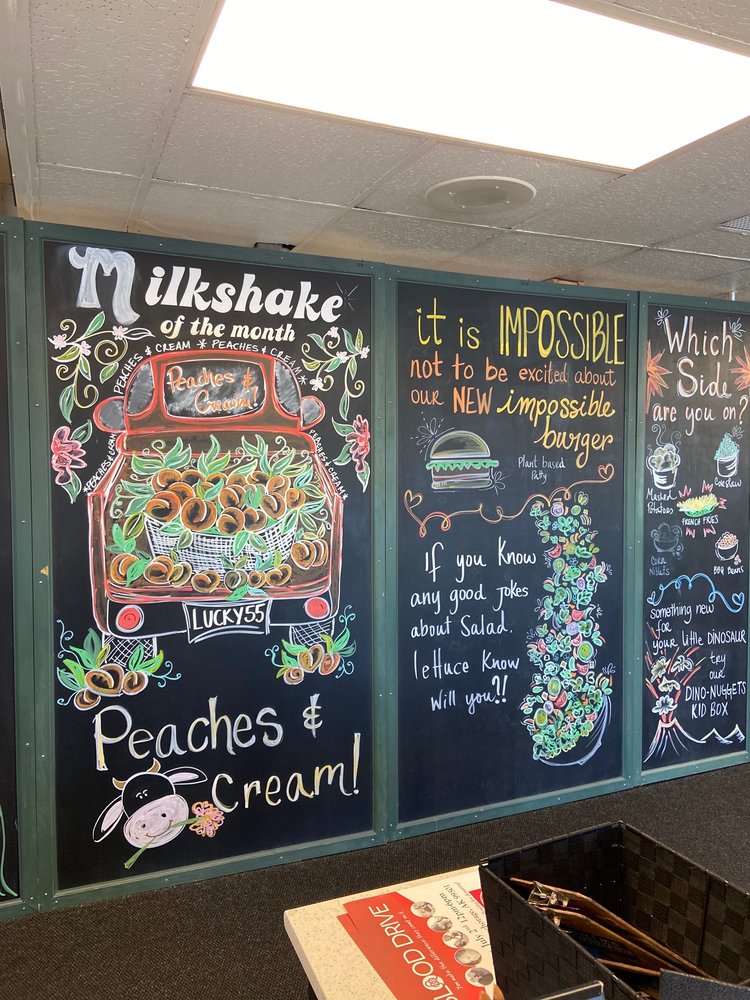 Milkshake
of the month
PEACHES & CREAM * PEACHES & CREAM
PEACHES & CREAM
PEACHES & CREAM
Peaches &
Cream!
LUCKY55
Peaches &
Cream!
it is IMPOSSIBLE
not to be excited about
our NEW impossible
burger
Plant based
Patty
If you know
any good jokes
about Salad.
lettuce know
will you?!
Which
Side
are you on?
Mashed
Potatoes
Coleslaw
FRENCH FRIES
Corn
Niblets
BBQ Beans
something new
for
your little DINOSAUR
try
our
DINO-NUGGETS
KID BOX
BLOOD DRIVE
July 2nd 12pm-6pm
AK 99301